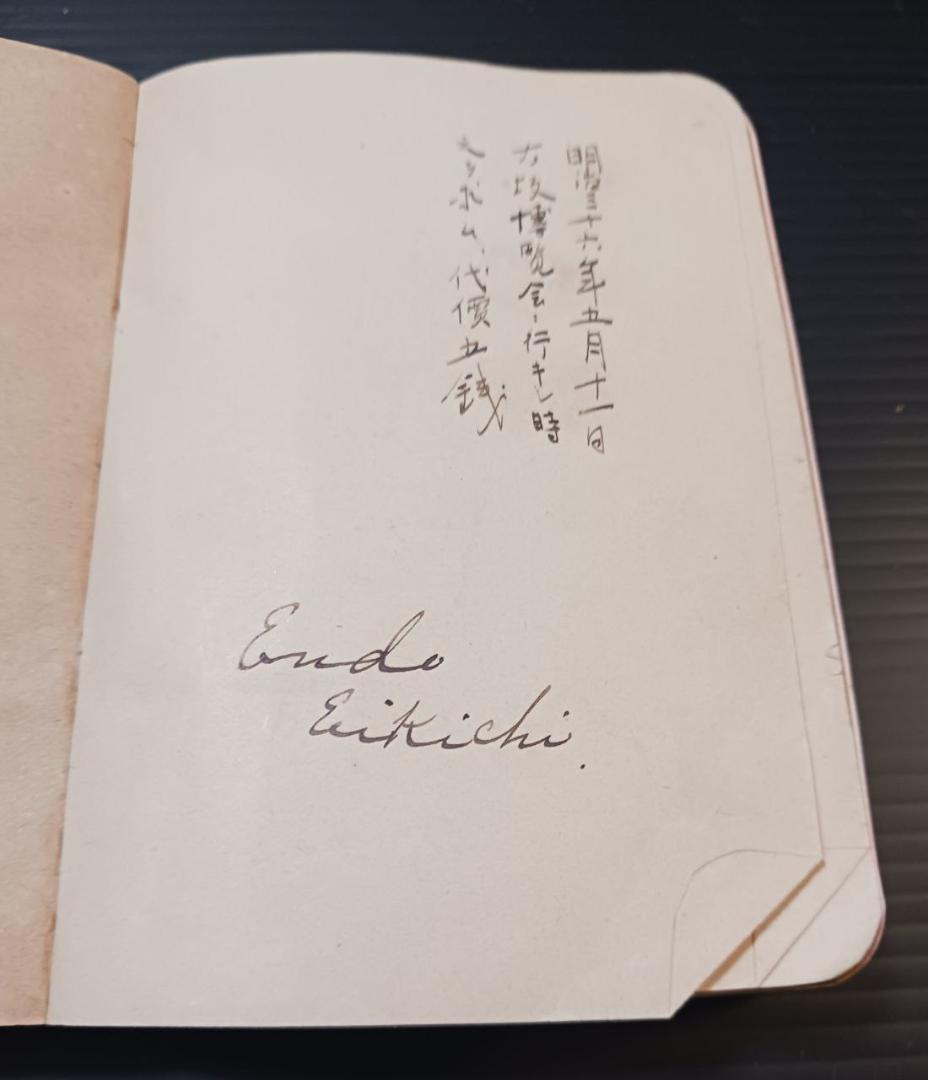 明治三十六年五月十一日
大坂博覧会ニ行キシ時
之ヲ求ム、代價五銭
Endo
Eikichi.